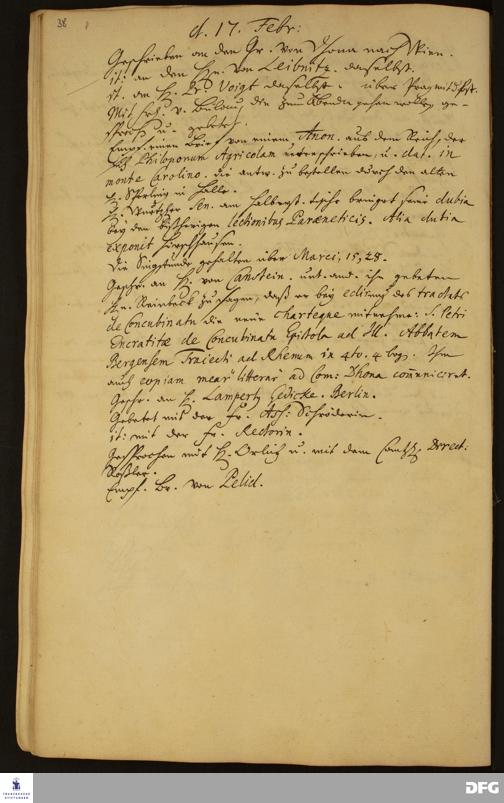 38
d. 17. Febr:
Geschrieben an den Gr. von Dhona nach Wien.
it: an den Hn. von Leibnitz. daselbst.
it. an H. Voigt daselbst. über Pragmat.
Mit H. v. Bülow, der zum Abendm. gehen wollen, ge-
sprochen u. gebetet.
Empf. einen Brief von einem Anon. aus dem Reich, der
sich Philoponum Agricolam unterschrieben, u. dat. in
monte Carolino. die antw. zu bestellen durch den alten
H. Sperling in Halle.
H. sen. am Halberst. bringet seine dubia
bey den bißherigen lectionibus Paraeneticis. Alia dubia
exponit Hirschhausen.
Die Singstunde gehalten über Marci, 15, 28.
Geschr. an H. von Canstein. unt. and. ihn gebeten
Hn. Reinbeck zu sagen, daß er bey edirung des tractats
de Concubinatu die neue charteque mitnehme: S. Petri
Encratitae de Concubinatu Epistola ad Ill. Abbatem
Bergensem. Traiecti ad Rhenum in 4to. 4 bog. Ihm
auch copiam mear. litterar. ad Com: Dhona communiceret.
Geschr. an H. Lampert Gedicke. Berlin.
Gebetet mit der Fr. Ass: Schröderin.
it: mit der Fr. Rectorin.
Gesprochen mit H. Orlich u. mit dem Direct:
Roßler.
Empf. Br. von Pelid.
FRANCKESCHE STIFTUNGEN
DFG